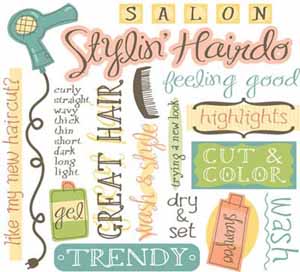 SALON
Stylin' Hairdo
feeling good
like my new haircut?
curly
straight
wavy
thick
thin
short
dark
long
light
GREAT HAIR
wash & style
trying a new look
highlights
CUT &
COLOR
gel
dry &
set
shampoo
wash
TRENDY